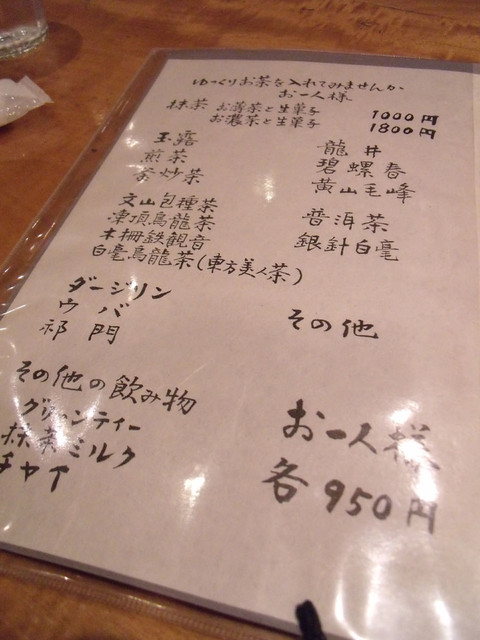 ゆっくりお茶を入れてみませんか
お一人様
抹茶 お薄茶と生菓子 1000円
お濃茶と生菓子 1800円
玉露
煎茶
茶炒茶
文山包種茶
凍頂烏龍茶
木柵鉄観音
白毫烏龍茶(東方美人茶)
龍井
碧螺春
黄山毛峰
普洱茶
銀針白毫
ダージリン
ウバ
祁門
その他
その他の飲み物
グリーンティー
抹茶ミルク
チャイ
お一人様
各950円